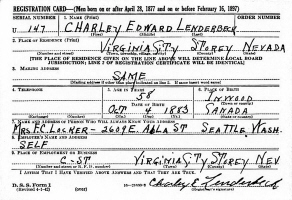 REGISTRATION CARD—(Men born on or after April 28, 1877 and on or before February 16, 1897)
SERIAL NUMBER 1. NAME (Print) ORDER NUMBER
U 147 CHARLEY EDWARD LENDERBECK
(First) (Middle) (Last)
2. PLACE OF RESIDENCE (Print)
VIRGINIA CITY STOREY NEVADA
(Number and street) (Town, township, village, or city) (County) (State)
[THE PLACE OF RESIDENCE GIVEN ON THE LINE ABOVE WILL DETERMINE LOCAL BOARD
JURISDICTION; LINE 2 OF REGISTRATION CERTIFICATE WILL BE IDENTICAL]
3. MAILING ADDRESS
SAME
[Mailing address if other than place indicated on line 2. If same insert word same]
4. TELEPHONE 5. AGE IN YEARS 6. PLACE OF BIRTH
58 INWOOD
DATE OF BIRTH
OCT 4 1883 CANADA
(Exchange) (Number) (Mo.) (Day) (Yr.) (State or country)
7. NAME AND ADDRESS OF PERSON WHO WILL ALWAYS KNOW YOUR ADDRESS
MRS. F.C. LOCHER - 2609 E. ST SEATTLE, WASH.
8. EMPLOYER'S NAME AND ADDRESS
SELF
9. PLACE OF EMPLOYMENT OR BUSINESS
C-ST VIRGINIA CITY STOREY NEV
(Number and street or R. F. D. number) (Town) (County) (State)
I AFFIRM THAT I HAVE VERIFIED ABOVE ANSWERS AND THAT THEY ARE TRUE.
D. S. S. Form 1
(Revised 4-1-42) (over) Charley E Lenderbeck
(Registrant's signature)